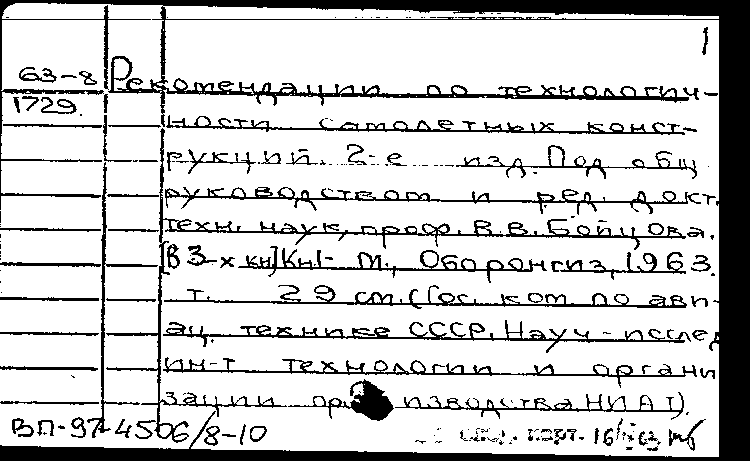 1
63-8 Рекомендации по технологич-
1729. ности самолетных конст-
рукций. 2-е изд. Под общ
руководством и ред. докт.
техн. наук, проф. В.В. Бойцова.
[В 3-х кн] Кн1- М., Оборонгиз, 1963.
т. 29 см. (Гос. ком. по ави-
ац. технике СССР. Науч-исслед
ин-т технологии и органи
зации производства НИАТ).
ВП-97-4506/8-10